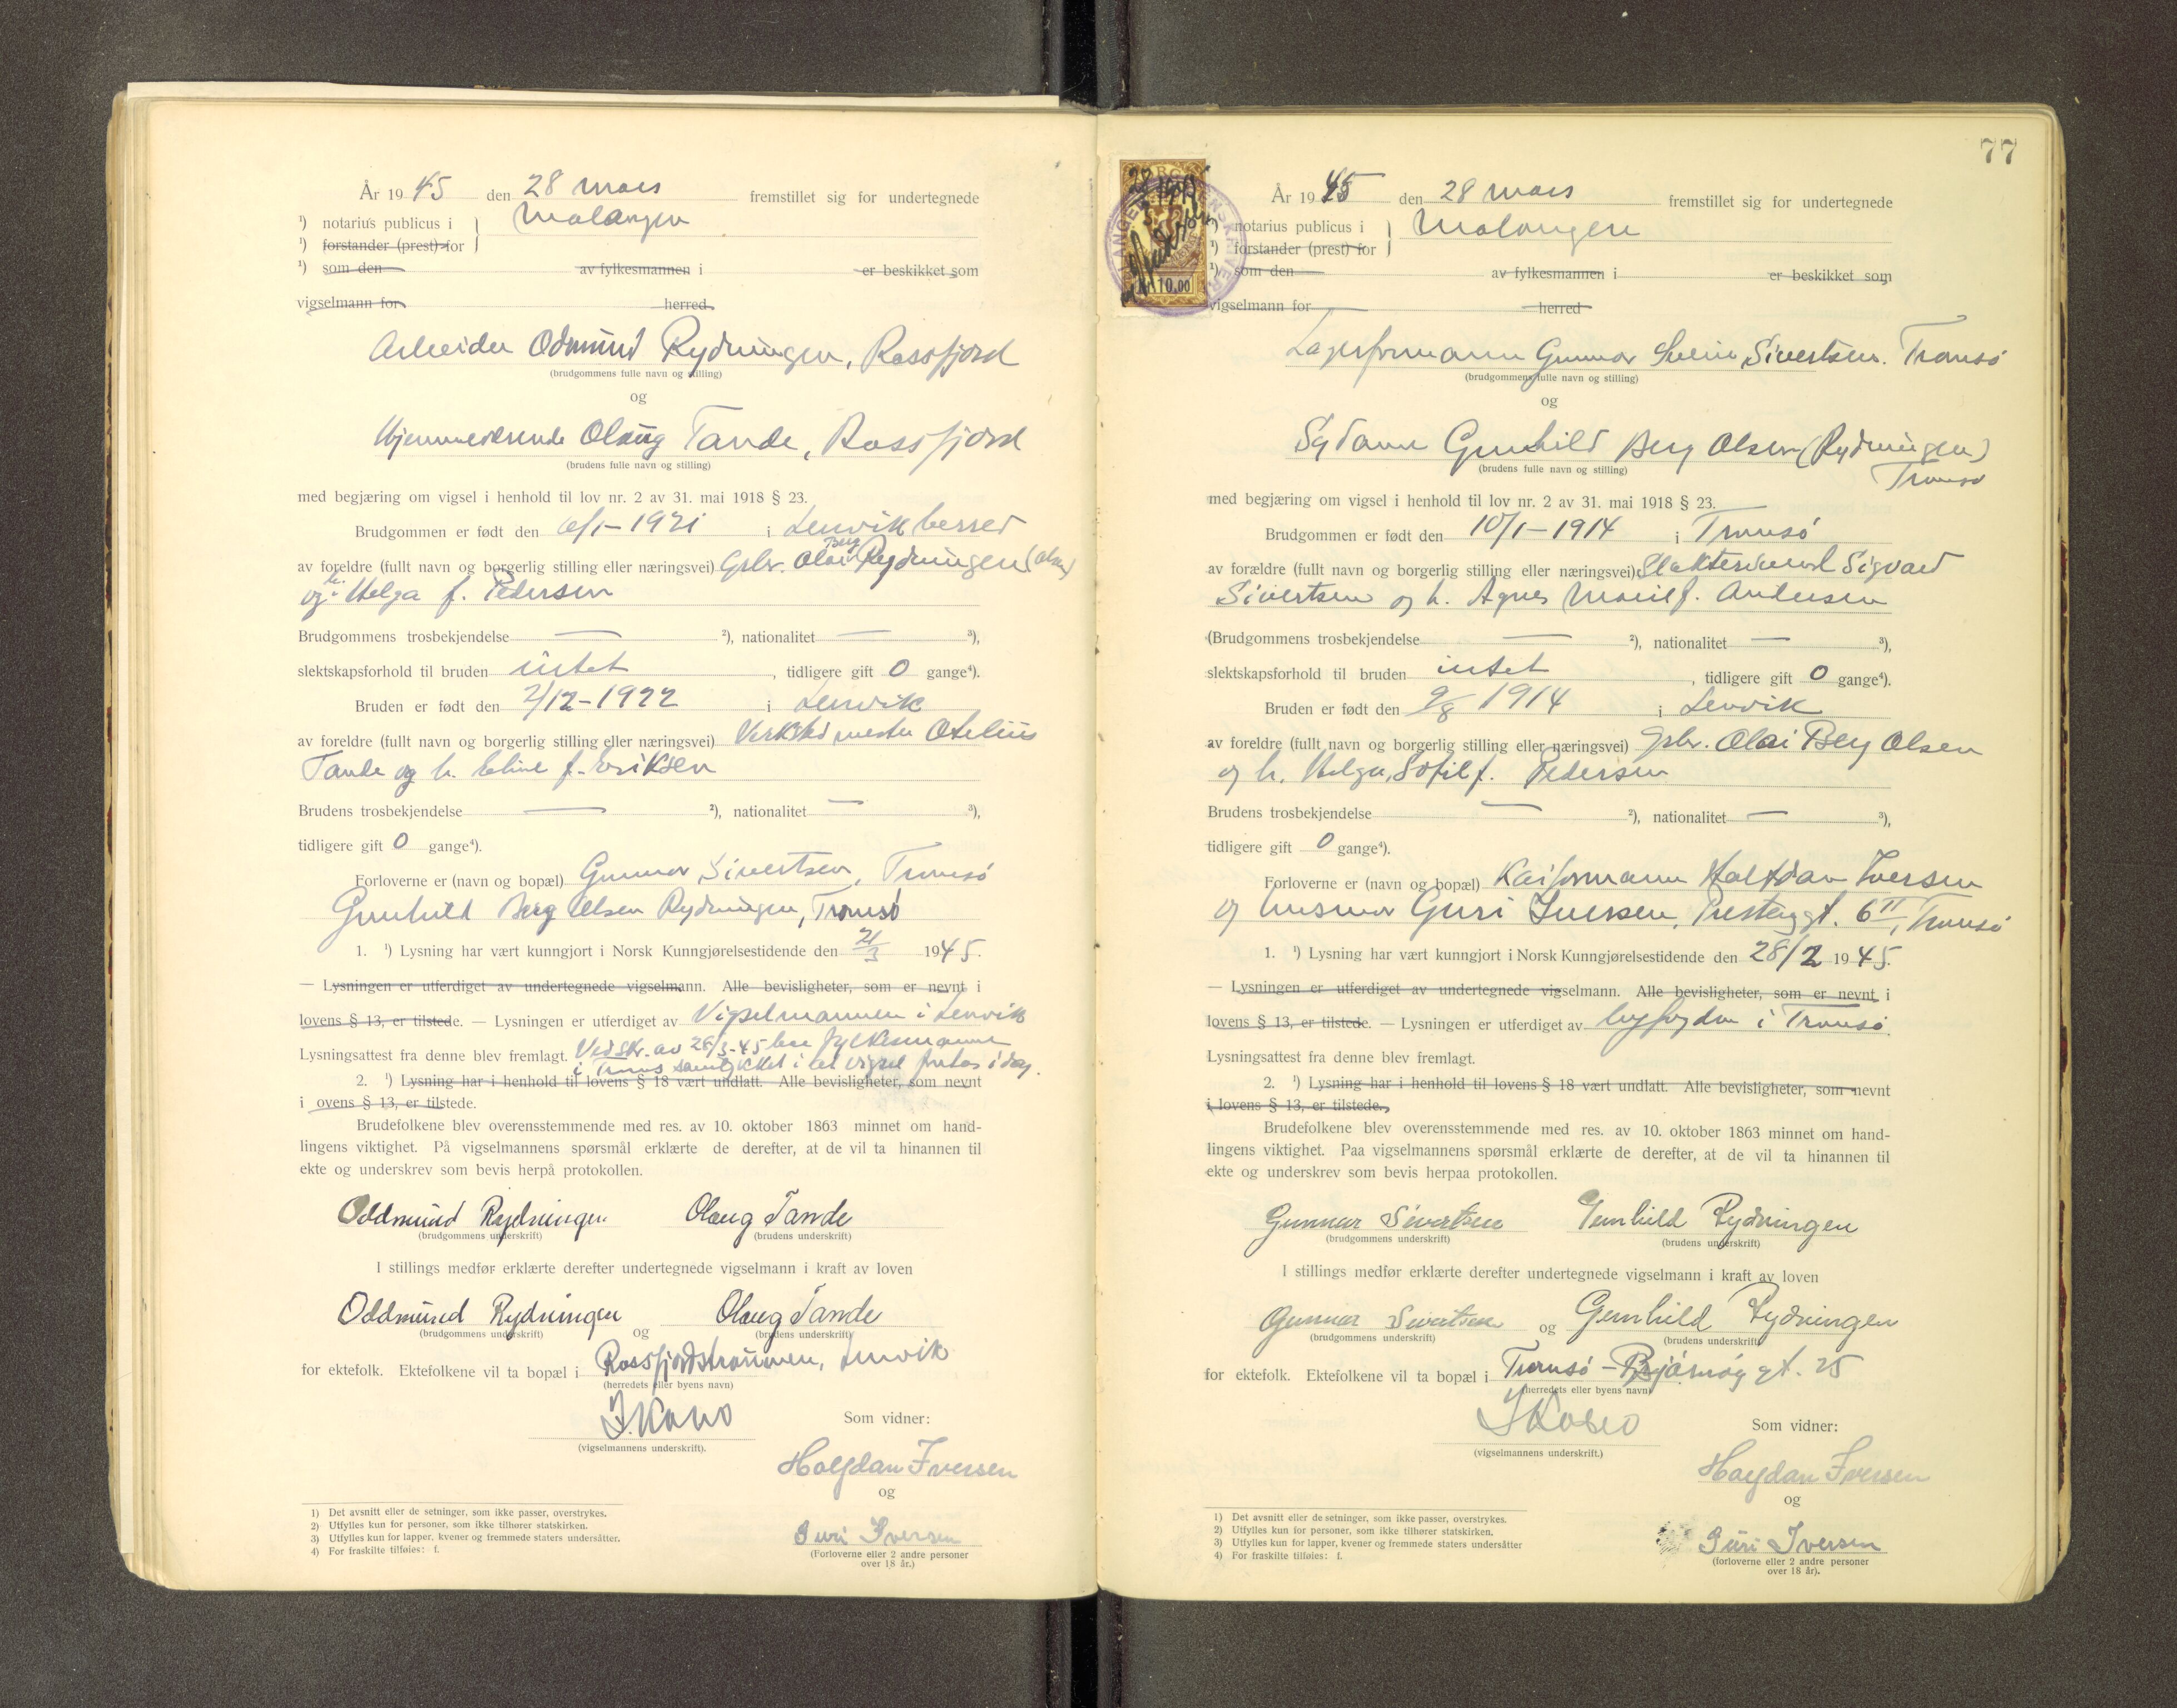 År 1945 den 28 mars fremstillet sig for undertegnede
¹) notarius publicus i } Malangen
¹) forstander (prest) for
¹) som den av fylkesmannen i er beskikket som
vigselmann for herred
Arbeider Odmund Rydningen, Rossfjord
(brudgommens fulle navn og stilling)
og
Hjemmeværende Olaug Tande, Rossfjord
(brudens fulle navn og stilling)
med begjæring om vigsel i henhold til lov nr. 2 av 31. mai 1918 § 23.
Brudgommen er født den 6/1-1921 i Lenvik herred
av foreldre (fullt navn og borgerlig stilling eller næringsvei) Gbr. Olai Berg Rydningen (Olsen)
og h. Helga f. Pedersen
Brudgommens trosbekjendelse — ²), nationalitet — ³),
slektskapsforhold til bruden intet, tidligere gift 0 gange⁴).
Bruden er født den 2/12-1922 i Lenvik
av foreldre (fullt navn og borgerlig stilling eller næringsvei) Verkstedmester Otelius
Tande og h. Eline f. Eriksen
Brudens trosbekjendelse — ²), nationalitet — ³),
tidligere gift 0 gange⁴).
Forloverne er (navn og bopæl) Gunnar Sivertsen, Tromsø
Gunhild Berg Olsen Rydningen, Tromsø
1. ¹) Lysning har vært kunngjort i Norsk Kunngjørelsestidende den 21/3 1945.
— Lysningen er utferdiget av undertegnede vigselmann. Alle bevisligheter, som er nevnt i
lovens § 13, er tilstede. — Lysningen er utferdiget av Vigselmannen i Lenvik
Lysningsattest fra denne blev fremlagt. Ved skr. av 28/3-45 har fylkesmannen
i Troms samtykket i at vigsel foretas i dag.
2. ¹) Lysning har i henhold til lovens § 18 vært undlatt. Alle bevisligheter, som nevnt
i ovens § 13, er tilstede.
Brudefolkene blev overensstemmende med res. av 10. oktober 1863 minnet om hand-
lingens viktighet. På vigselmannens spørsmål erklærte de derefter, at de vil ta hinannen til
ekte og underskrev som bevis herpå protokollen.
Oddmund Rydningen Olaug Tande
(brudgommens underskrift) (brudens underskrift)
I stillings medfør erklærte derefter undertegnede vigselmann i kraft av loven
Oddmund Rydningen og Olaug Tande
(brudgommens underskrift) (brudens underskrift)
for ektefolk. Ektefolkene vil ta bopæl i Rossfjordstraumen, Lenvik
(herredets eller byens navn)
(vigselmannens underskrift).
Som vidner:
Halfdan Iversen
og
Guri Iversen
(Forloverne eller 2 andre personer
over 18 år.)
1) Det avsnitt eller de setninger, som ikke passer, overstrykes.
2) Utfylles kun for personer, som ikke tilhører statskirken.
3) Utfylles kun for lapper, kvener og fremmede staters undersåtter.
4) For fraskilte tilføies: f.
77
10.00
År 1945 den 28 mars fremstillet sig for undertegnede
notarius publicus i } Malangen
¹) forstander (prest) for
¹) som den av fylkesmannen i er beskikket som
vigselmann for herred
Lagerformann Gunnar Sivertsen. Tromsø
(brudgommens fulle navn og stilling)
og
Sydame Gunhild Berg Olsen (Rydningen)
Tromsø
(brudens fulle navn og stilling)
med begjæring om vigsel i henhold til lov nr. 2 av 31. mai 1918 § 23.
Brudgommen er født den 10/1-1914 i Tromsø
av forældre (fullt navn og borgerlig stilling eller næringsvei) Sigvard
Sivertsen og h. Agnes Marie f. Andersen
(Brudgommens trosbekjendelse — ²), nationalitet — ³),
slektskapsforhold til bruden intet, tidligere gift 0 gange⁴).
Bruden er født den 9/8 1914 i Lenvik
av foreldre (fullt navn og borgerlig stilling eller næringsvei) Gbr. Olai Berg Olsen
og h. Helga Sofie f. Pedersen
Brudens trosbekjendelse — ²), nationalitet — ³),
tidligere gift 0 gange⁴).
Forloverne er (navn og bopæl) Kaiformann Halfdan Iversen
og husmor Guri Iversen, 6 II, Tromsø
1. ¹) Lysning har vært kunngjort i Norsk Kunngjørelsestidende den 28/2 1945.
— Lysningen er utferdiget av undertegnede vigselmann. Alle bevisligheter, som er nevnt i
lovens § 13, er tilstede. — Lysningen er utferdiget av byfogden i Tromsø
Lysningsattest fra denne blev fremlagt.
2. ¹) Lysning har i henhold til lovens § 18 vært undlatt. Alle bevisligheter, som nevnt
i lovens § 13, er tilstede.
Brudefolkene blev overensstemmende med res. av 10. oktober 1863 minnet om hand-
lingens viktighet. Paa vigselmannens spørsmål erklærte de derefter, at de vil ta hinannen til
ekte og underskrev som bevis herpaa protokollen.
Gunnar Sivertsen Gunhild Rydningen
(brudgommens underskrift) (brudens underskrift)
I stillings medfør erklærte derefter undertegnede vigselmann i kraft av loven
Gunnar Sivertsen og Gunhild Rydningen
(brudgommens underskrift) (brudens underskrift)
for ektefolk. Ektefolkene vil ta bopæl i Tromsø - gt. 25
(herredets eller byens navn)
(vigselmannens underskrift.)
Som vidner:
Halfdan Iversen
og
Guri Iversen
(forloverne eller 2 andre personer
over 18 år).
1) Det avsnitt eller de setninger, som ikke passer, overstrykes.
2) Utfylles kun for personer, som ikke tilhører statskirken.
3) Utfylles kun for lapper, kvener og fremmede staters undersåtter
4) For fraskilte tilføies: f.